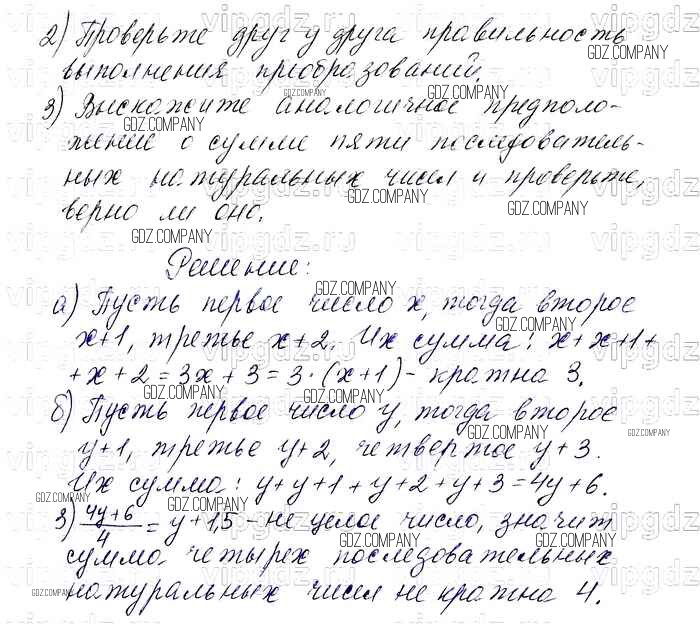 2) Проверьте друг у друга правильность
выполнения преобразований.
3) Выскажите аналогичное предполо-
жение о сумме пяти последователь-
ных натуральных чисел и проверьте,
верно ли оно.
Решение:
а) Пусть первое число x, тогда второе
x+1, третье x+2. Их сумма: x+x+1+
+x+2=3x+3=3·(x+1)- кратна 3.
б) Пусть первое число y, тогда второе
y+1, третье y+2, четвертое y+3.
Их сумма: y+y+1+y+2+y+3=4y+6.
3) (4y+6)/4 = y+1,5 - не целое число, значит
сумма четырех последовательных
натуральных чисел не кратна 4.